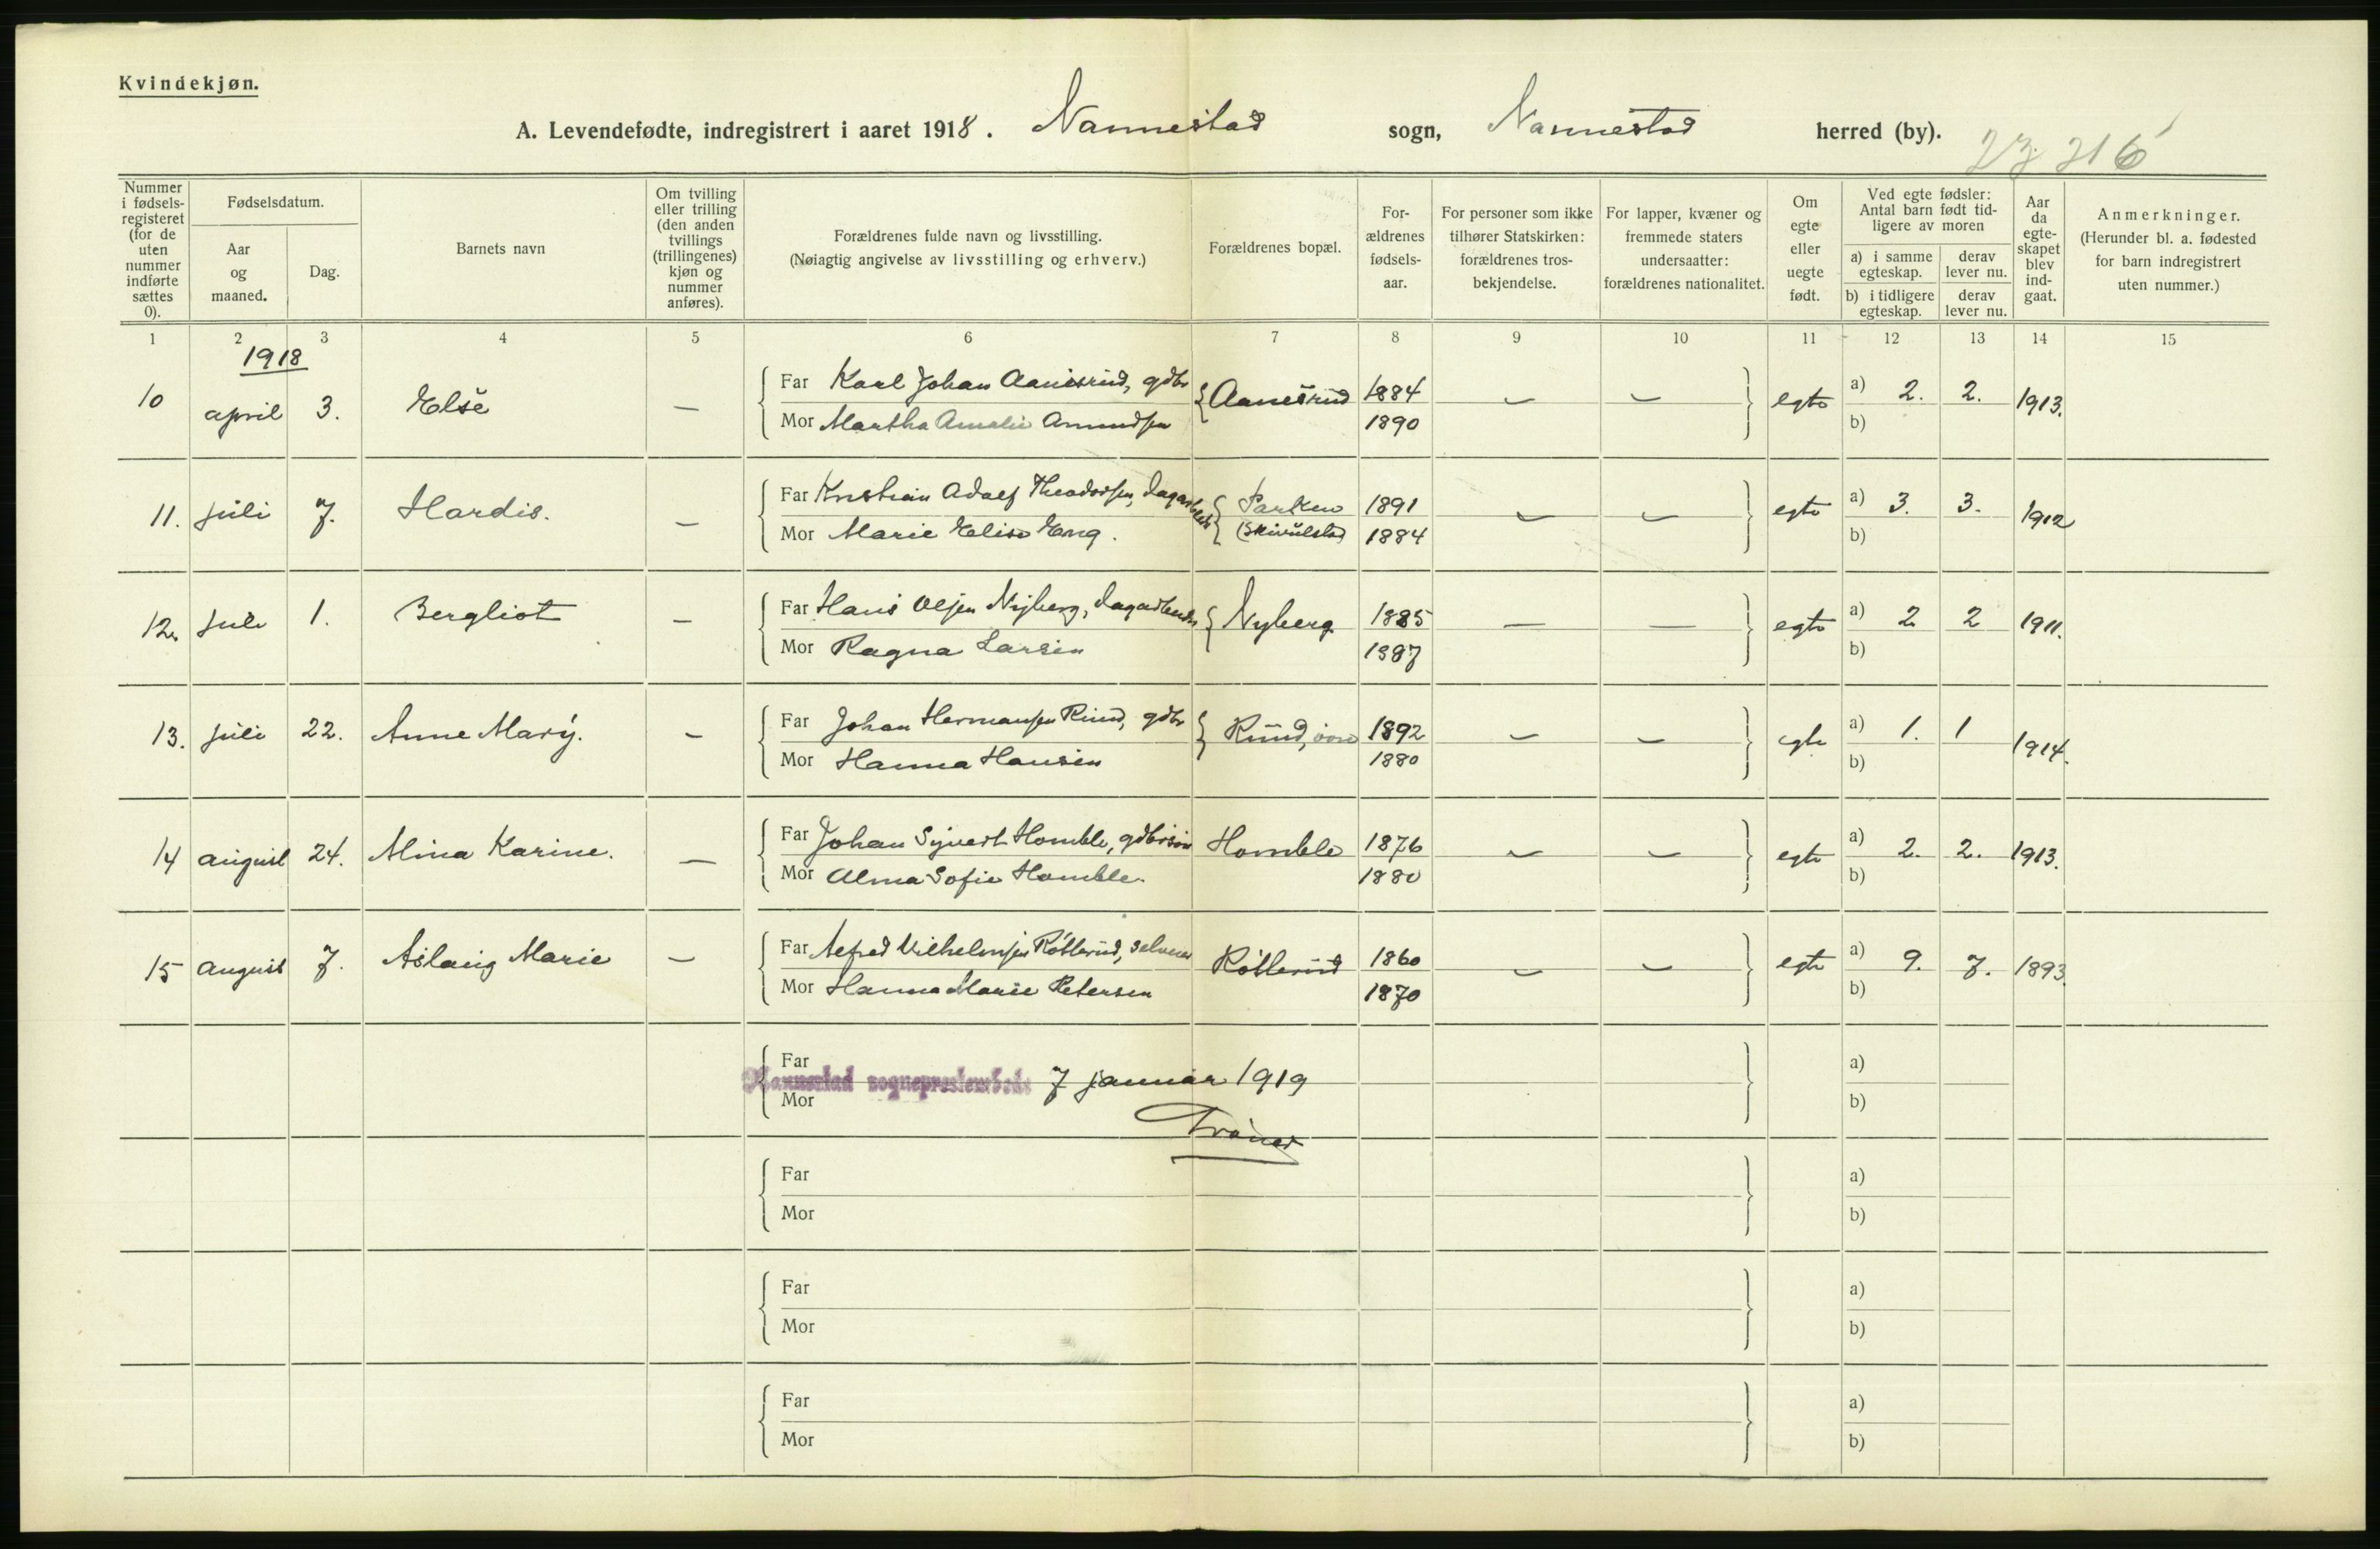 Kvindekjøn.
A. Levendefødte, indregistrert i aaret 1918. Nannestad sogn, Nannestad herred (by).
Nummer i fødsels-registeret (for de uten nummer indførte sættes 0).
Fødselsdatum.
Aar og maaned.
Dag.
Barnets navn
Om tvilling eller trilling (den anden tvillings (trillingenes) kjøn og nummer anføres).
Forældrenes fulde navn og livsstilling.
(Nøiagtig angivelse av livsstilling og erhverv.)
Forældrenes bopæl.
For-ældrenes fødsels-aar.
For personer som ikke tilhører Statskirken: forældrenes tros-bekjendelse.
For lapper, kvæner og fremmede staters undersaatter: forældrenes nationalitet.
Om egte eller uegte født.
Ved egte fødsler: Antal barn født tid-ligere av moren
a) i samme egteskap.
derav lever nu.
b) i tidligere egteskap.
derav lever nu.
Aar da egte-skapet blev ind-gaat.
Anmerkninger.
(Herunder bl. a. fødested for barn indregistrert uten nummer.)
1 2 3 4 5 6 7 8 9 10 11 12 13 14 15
1918
10 april 3. Else — Far Karl Johan Aanesrud, gdbr Aanesrud 1884 — — egte a) 2. 2. 1913.
Mor Martha Amalie Amundsen 1890 b)
11. juli 7. Hardis. — Far Kristian Adolf Theodorsen, dagarbeid Parken 1891 — — egte a) 3. 3. 1912
Mor Marie Elise Eng. (Skivulstad) 1884 b)
12. juli 1. Bergliot — Far Hans Olsen Nyberg, dagarbeider Nyberg 1885 — — egte a) 2 2 1911.
Mor Ragna Larsen 1887 b)
13. juli 22. Anne Mary. — Far Johan Hermansen Ruud, gdbr Ruud, övre 1892 — — egte a) 1. 1 1914.
Mor Hanna Hansen 1880 b)
14 august 24. Alma Karine. — Far Johan Syvert Homble, gdbrsön Homble 1876 — — egte a) 2. 2. 1913.
Mor Alma Sofie Homble. 1880 b)
15 august 7. Aslaug Marie — Far Alfred Vilhelmsen Rötterud, selveier Rötterud 1860 — — egte a) 9. 7. 1893.
Mor Hanna Marie Petersen 1870 b)
Far a)
Nannestad sogneprestembede 7 januar 1919
Mor b)
Far a)
Mor b)
Far a)
Mor b)
Far a)
Mor b)